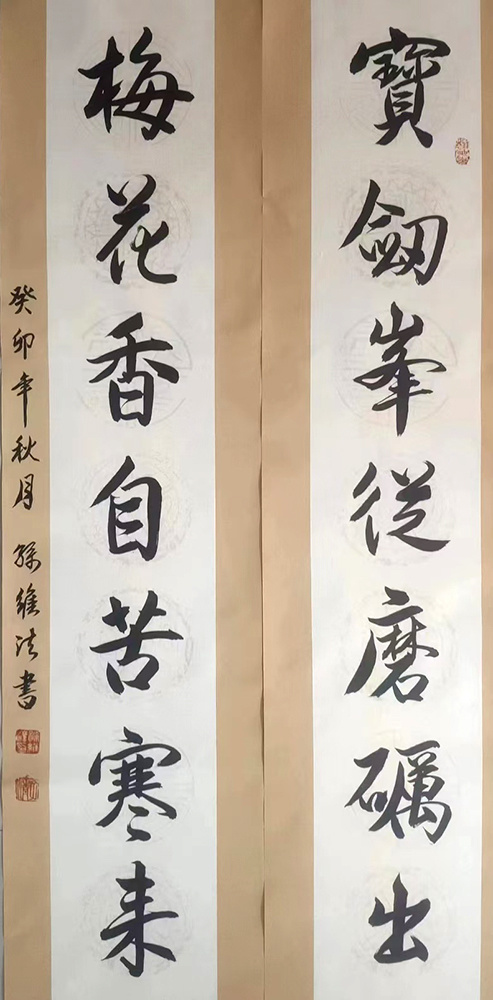 寶劔峯從磨礪出
梅花香自苦寒来
癸卯年秋月孫維法書